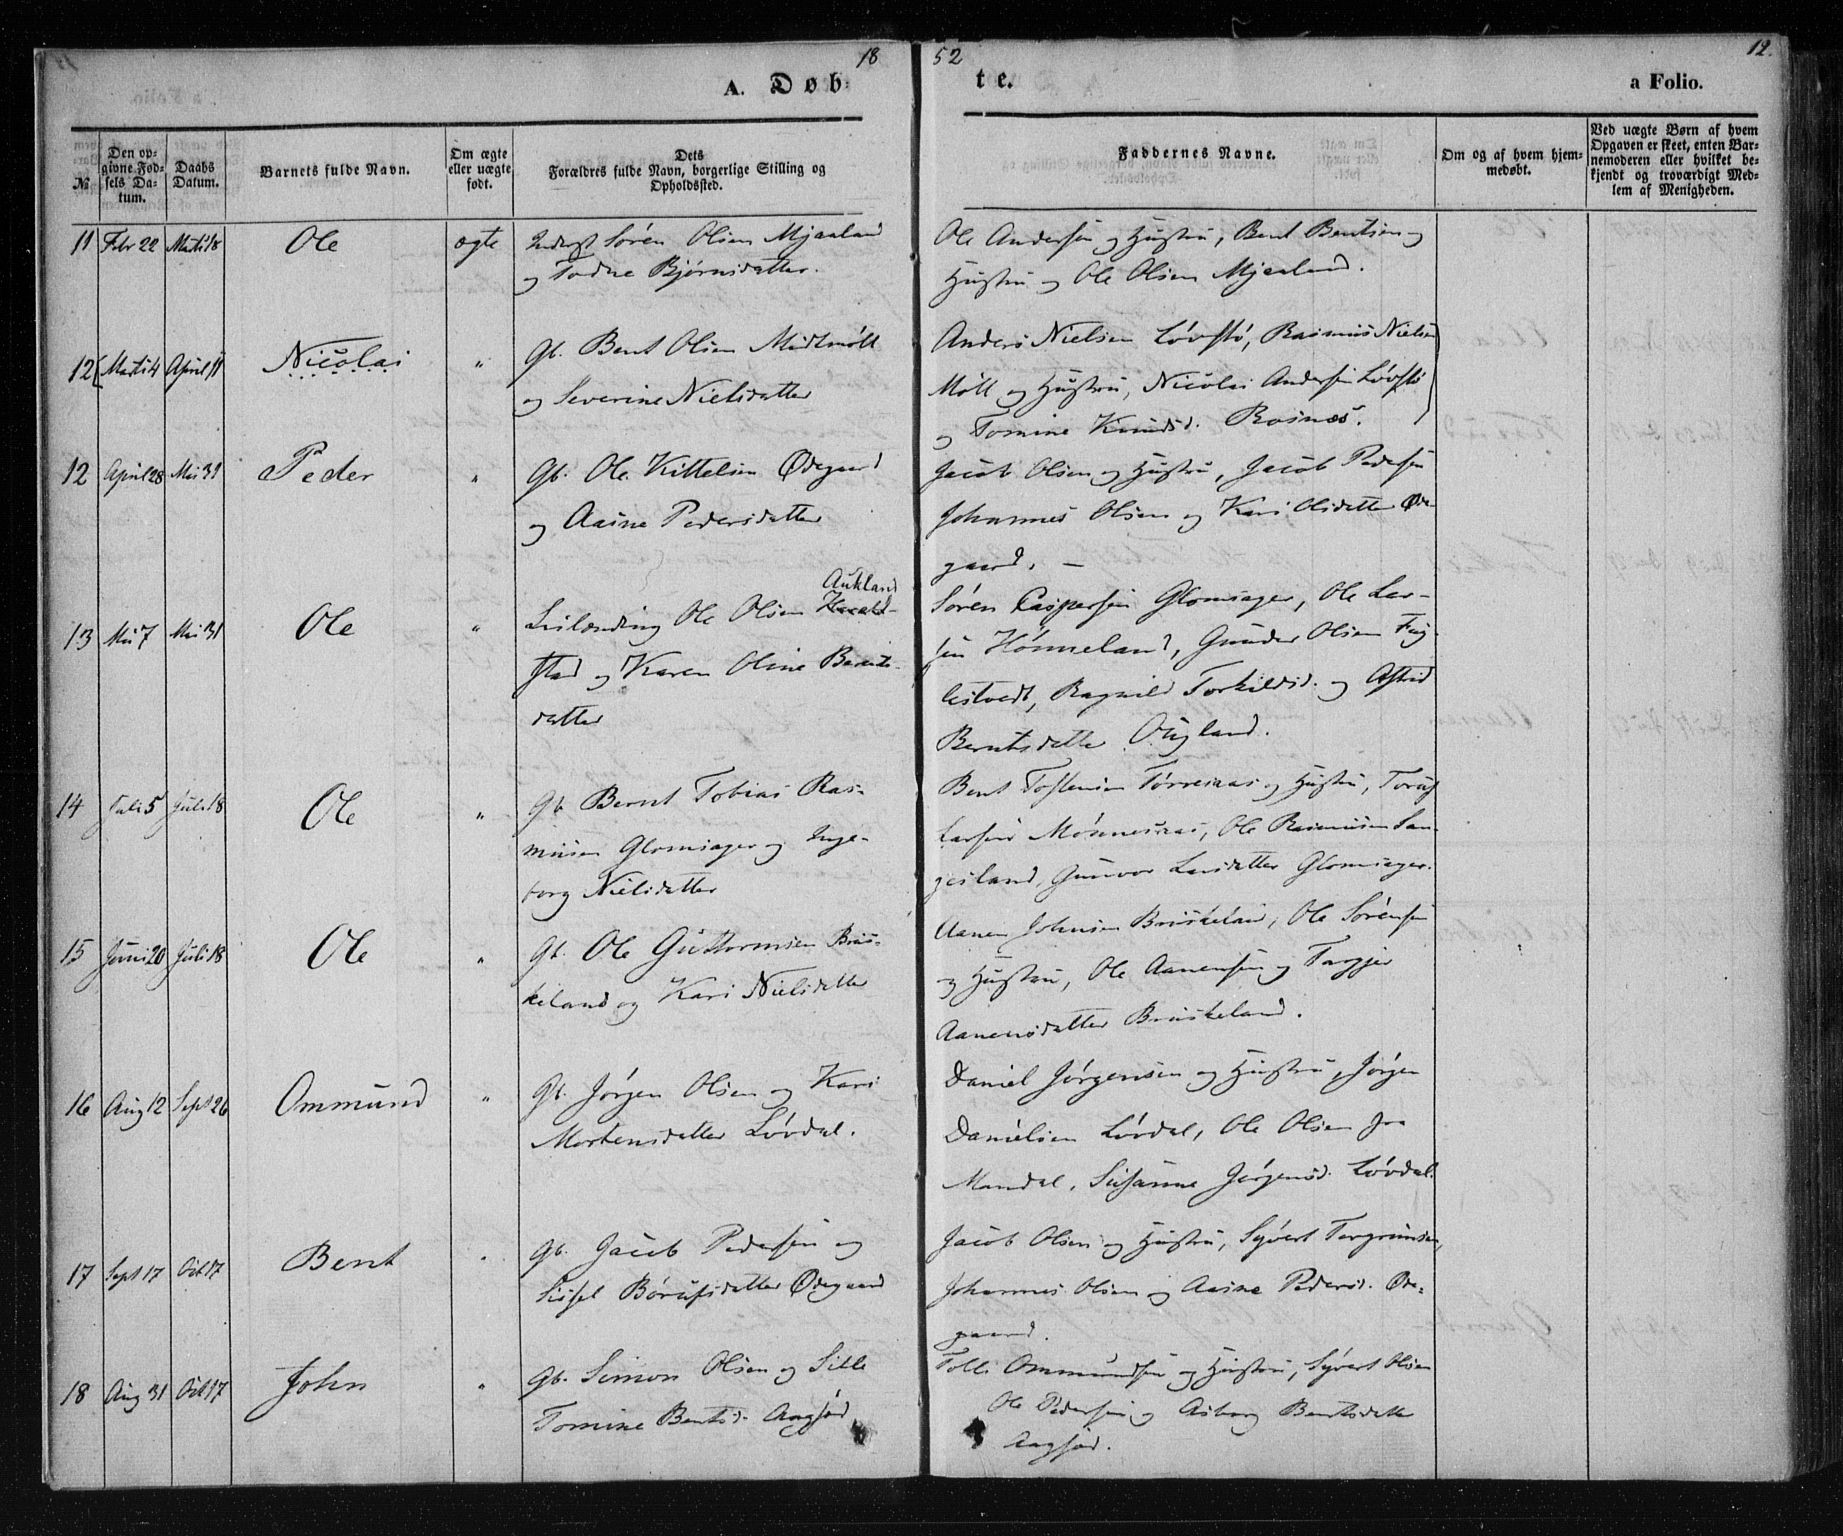 18 52 12.
A. Døbte. a Folio.
№
Den opgivne Fødsels Datum.
Daabs Datum.
Barnets fulde Navn.
Om ægte eller uægte født.
Dets Forældres fulde Navn, borgerlige Stilling og Opholdssted.
Faddernes Navne.
Om og af hvem hjemmedøbt.
Ved uægte Børn af hvem Opgaven er skeet, enten Barnemoderen eller hvilket bekjendt og troværdigt Medlem af Menigheden.
11 Febr 22 Marti 18 Ole ægte Søren Olsen Mjaaland
og Todne Bjørnsdatter.
Ole Andersen og Hustru, Bent Bentsen og
Hustru og Ole Olsen Mjaaland.
12 Marti 4 April 11 Nicolai " Gb. Bent Olsen Midtmöll
og Severine Nielsdatter
Anders Nielsen Lövstö, Rasmus Nielsen
Möll og Hustru, Nicolai Andersen Lövstö
og Tomine Knudsd. Rosnæs.
12 April 28 Mai 31 Peder " Gb. Ole Kittelsen Ødegaard
og Aasine Pedersdatter
Jacob Olsen og Hustru, Jacob Pedersen
Johannes Olsen og Kari Olsdatter Øde-
gaard. —
13 Mai 7 Mai 31 Ole " Leilænding Ole Olsen Aukland
stad og Karen Oline Bernts-
datter
Sören Caspersen Glomsager, Ole Lar-
sen Hönneland, Gunder Olsen Fug-
lestvedt, Ragnild Torkildsd. og Astrid
Berntsdatter Ougland.
14 Juli 5 Juli 18 Ole " Gb Bernt Tobias Ras-
musen Glomsager og Inge-
borg Nielsdatter
Bent Tostensen Törresnas og Hustru,
Larsen Mönnesnas, Ole Rasmusen Lan-
gesland, Gunvor Larsdatter Glomsager.
15 Juni 20 Juli 18 Ole " Gb. Ole Guttormsen Brus-
keland og Kari Nielsdatter
Aanen Johnsen Bruskeland, Ole Sörensen
og Hustru, Ole Aanensen og Targjer
Aanensdatter Bruskeland.
16 Aug 12 Sept 26 Ommund " Gb. Jörgen Olsen og Kari
Mortensdatter Lövdal.
Daniel Jörgensen og Hustru, Jörgen
Danielsen Lövdal, Ole Olsen fra
Mandal, Susanne Jörgensd. Lövdal.
17 Sept 17 Oct 17 Bent " Gb. Jacob Pedersen og
Sissel Börufsdatter Ødegaard
Jacob Olsen og Hustru, Syvert Torgrimsen,
Johannes Olsen og Aasine Pedersd. Øde-
gaard.
18 Aug 31 Oct 17 John " Gb. Simon Olsen og Sille
Tomine Bentsd. Aagsöd
Tolli Ommundsen og Hustru, Syvert Olsen
Ole Pedersen og Asborg Bentsdatter
Aagsöd.